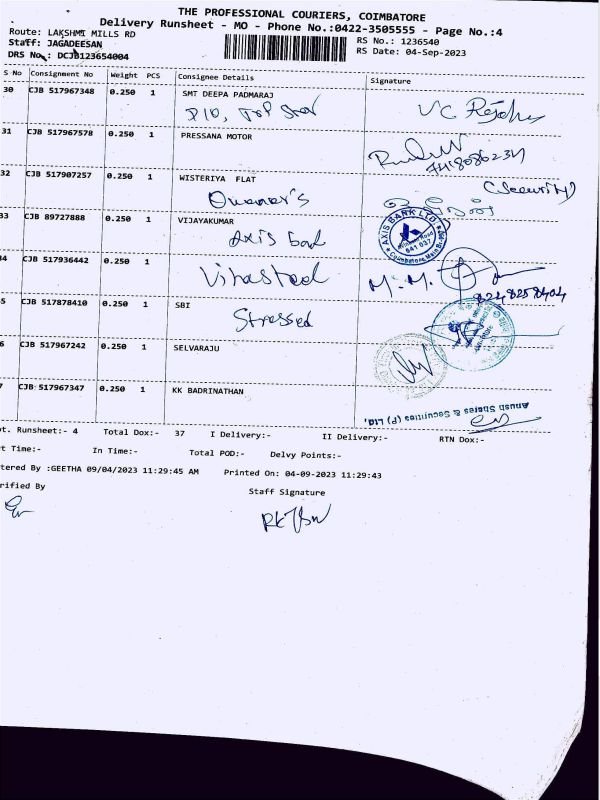 THE PROFESSIONAL COURIERS, COIMBATORE
Delivery Runsheet - MO - Phone No.:0422-3505555 - Page No.:4
Route: LAKSHMI MILLS RD
RS No.: 1236540
Staff: JAGADEESAN
RS Date: 04-Sep-2023
DRS No.: DCJB123654004
S No Consignment No Weight PCS Consignee Details Signature
30 CJB 517967348 0.250 1 SMT DEEPA PADMARAJ
31 CJB 517967578 0.250 1 PRESSANA MOTOR
32 CJB 517907257 0.250 1 WISTERIYA FLAT
(Security)
Owner's
33 CJB 89727888 0.250 1 VIJAYKUMAR
AXIS BANK LTD
641 037
Axis
34 CJB 517936442 0.250 1
M.M.
8248258404
5 CJB 517878410 0.250 1 SBI
Stressed
6 CJB 517967242 0.250 1 SELVARAJU
7 CJB 517967347 0.250 1 KK BADRINATHAN
Anush Shares & Securities (P) Ltd.
ot. Runsheet:- 4 Total Dox:- 37 I Delivery:- II Delivery:- RTN Dox:-
rt Time:- In Time:- Total POD:- Delvy Points:-
tered By :GEETHA 09/04/2023 11:29:45 AM Printed On: 04-09-2023 11:29:43
rified By Staff Signature